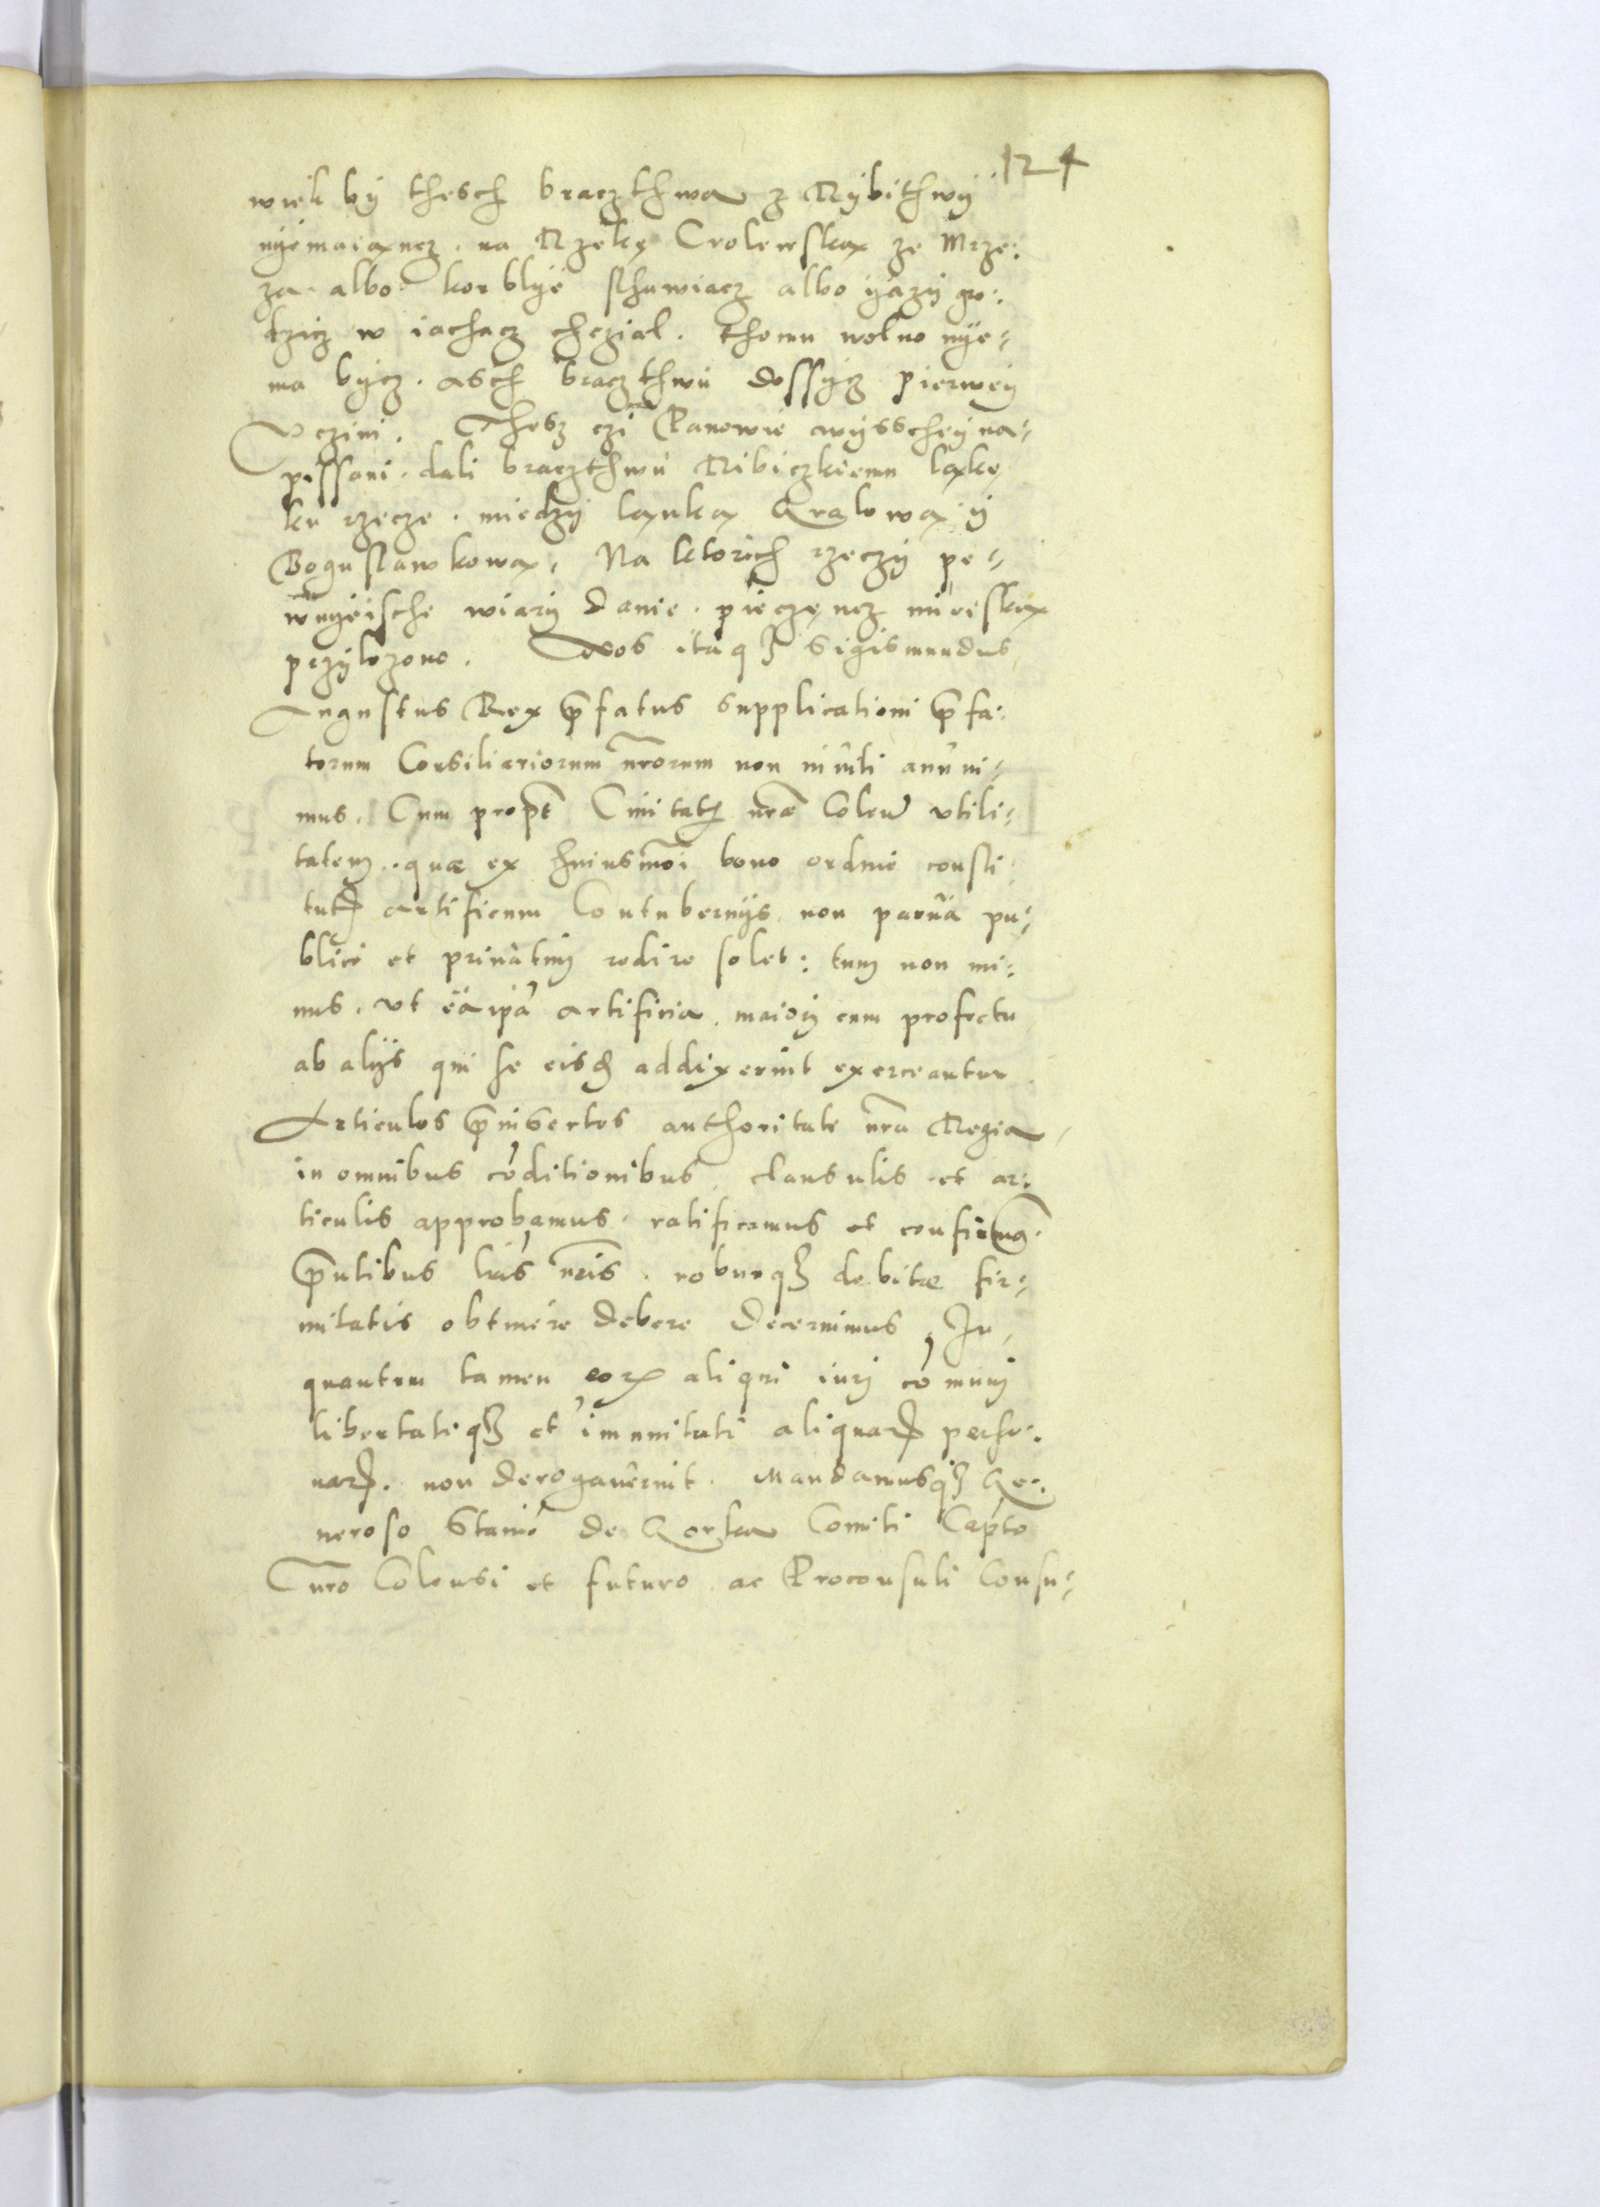 124
wiek by thesch braczthwa z Rybithwy
nyemaiancz. na Rzekę Crolewskax ze Mrze:
za albo korblye sthawiacz albo yazy gro:
tzicz w iachacz chczial. Thomu wolno nye=
ma bycz. asch braczthwu dossycz pierwey
Vczini. Thesz czi Panowie wysschey na=
pissani. dali braczthwu Ribiczkiemu laxke
ku rzecze. miedzy lanka Gralowa y
Boguslawkowa. Na ktorich rzeczy pe=
wnyeische wiary danie. pieczęncz mieiskax
przylozono. Nos itaqz Sigismundus
Augustus Rex p̄fatus supplicationi p̄fa:
torum Consiliariorum nr̄orum non inuiti annui=
mus. Cum propt Ciuitatis nr̄ae Colen̄ vtili=
tatem. quae ex huiusmōi bono ordine consti
tutis artificum Contubernijs non parua pu=
blice et priuatim redire solet: tum non mi:
nus. vt ea ipa artificia. maiori cum profectu
ab alijs qui se eisd addixerint exerceantur
Articulos p̄insertos authoritate nr̄a Regia
in omnibus cōditionibus clausulis et ar:
ticulis approbamus. ratificamus et confirma.
p̄ntibus lr̄is nr̄is. roburqz debitae fir=
mitatis obtinere debere decernimus, In
quantum tamen eorum aliqui iuri cōmuni
libertatiqz et imunitati aliquarum perso:
narum. non derogauerint. Mandamusqz Ge:
neroso Stanis de Gorka Comiti Capto
nr̄o Colensi et futuro ac Proconsuli Consu=